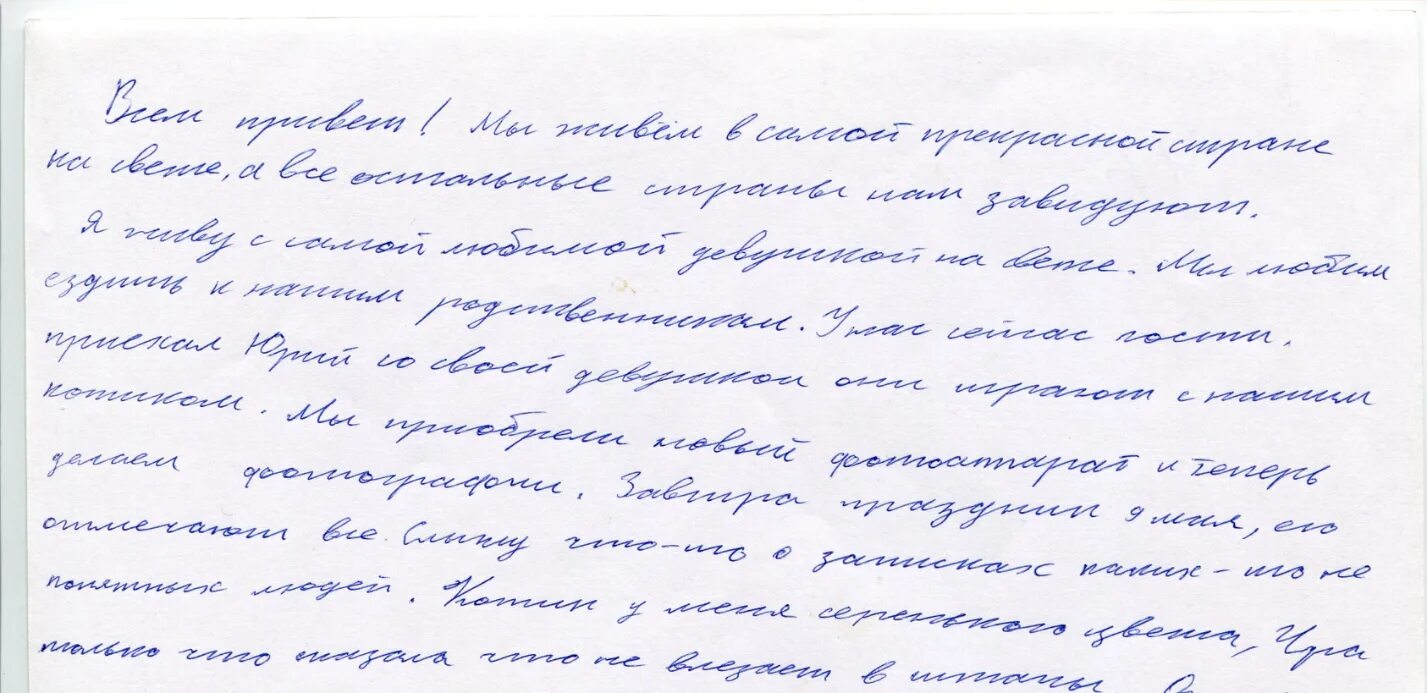 Всем привет! Мы живём в самой прекрасной стране
на свете, а все остальные страны нам завидуют.
Я живу с самой любимой девушкой на свете. Мы любим
ездить к нашим родственникам. У нас сейчас гости.
приехал Юрий со своей девушкой они играют с нашим
котиком. Мы приобрели новый фотоаппарат и теперь
делаем фотографии. Завтра праздник 9 мая, его
отмечают все. Слышу что-то о записках каких-то не
понятных людей. Котик у меня серенького цвета, Ира
только что сказала что не влезает в штаны